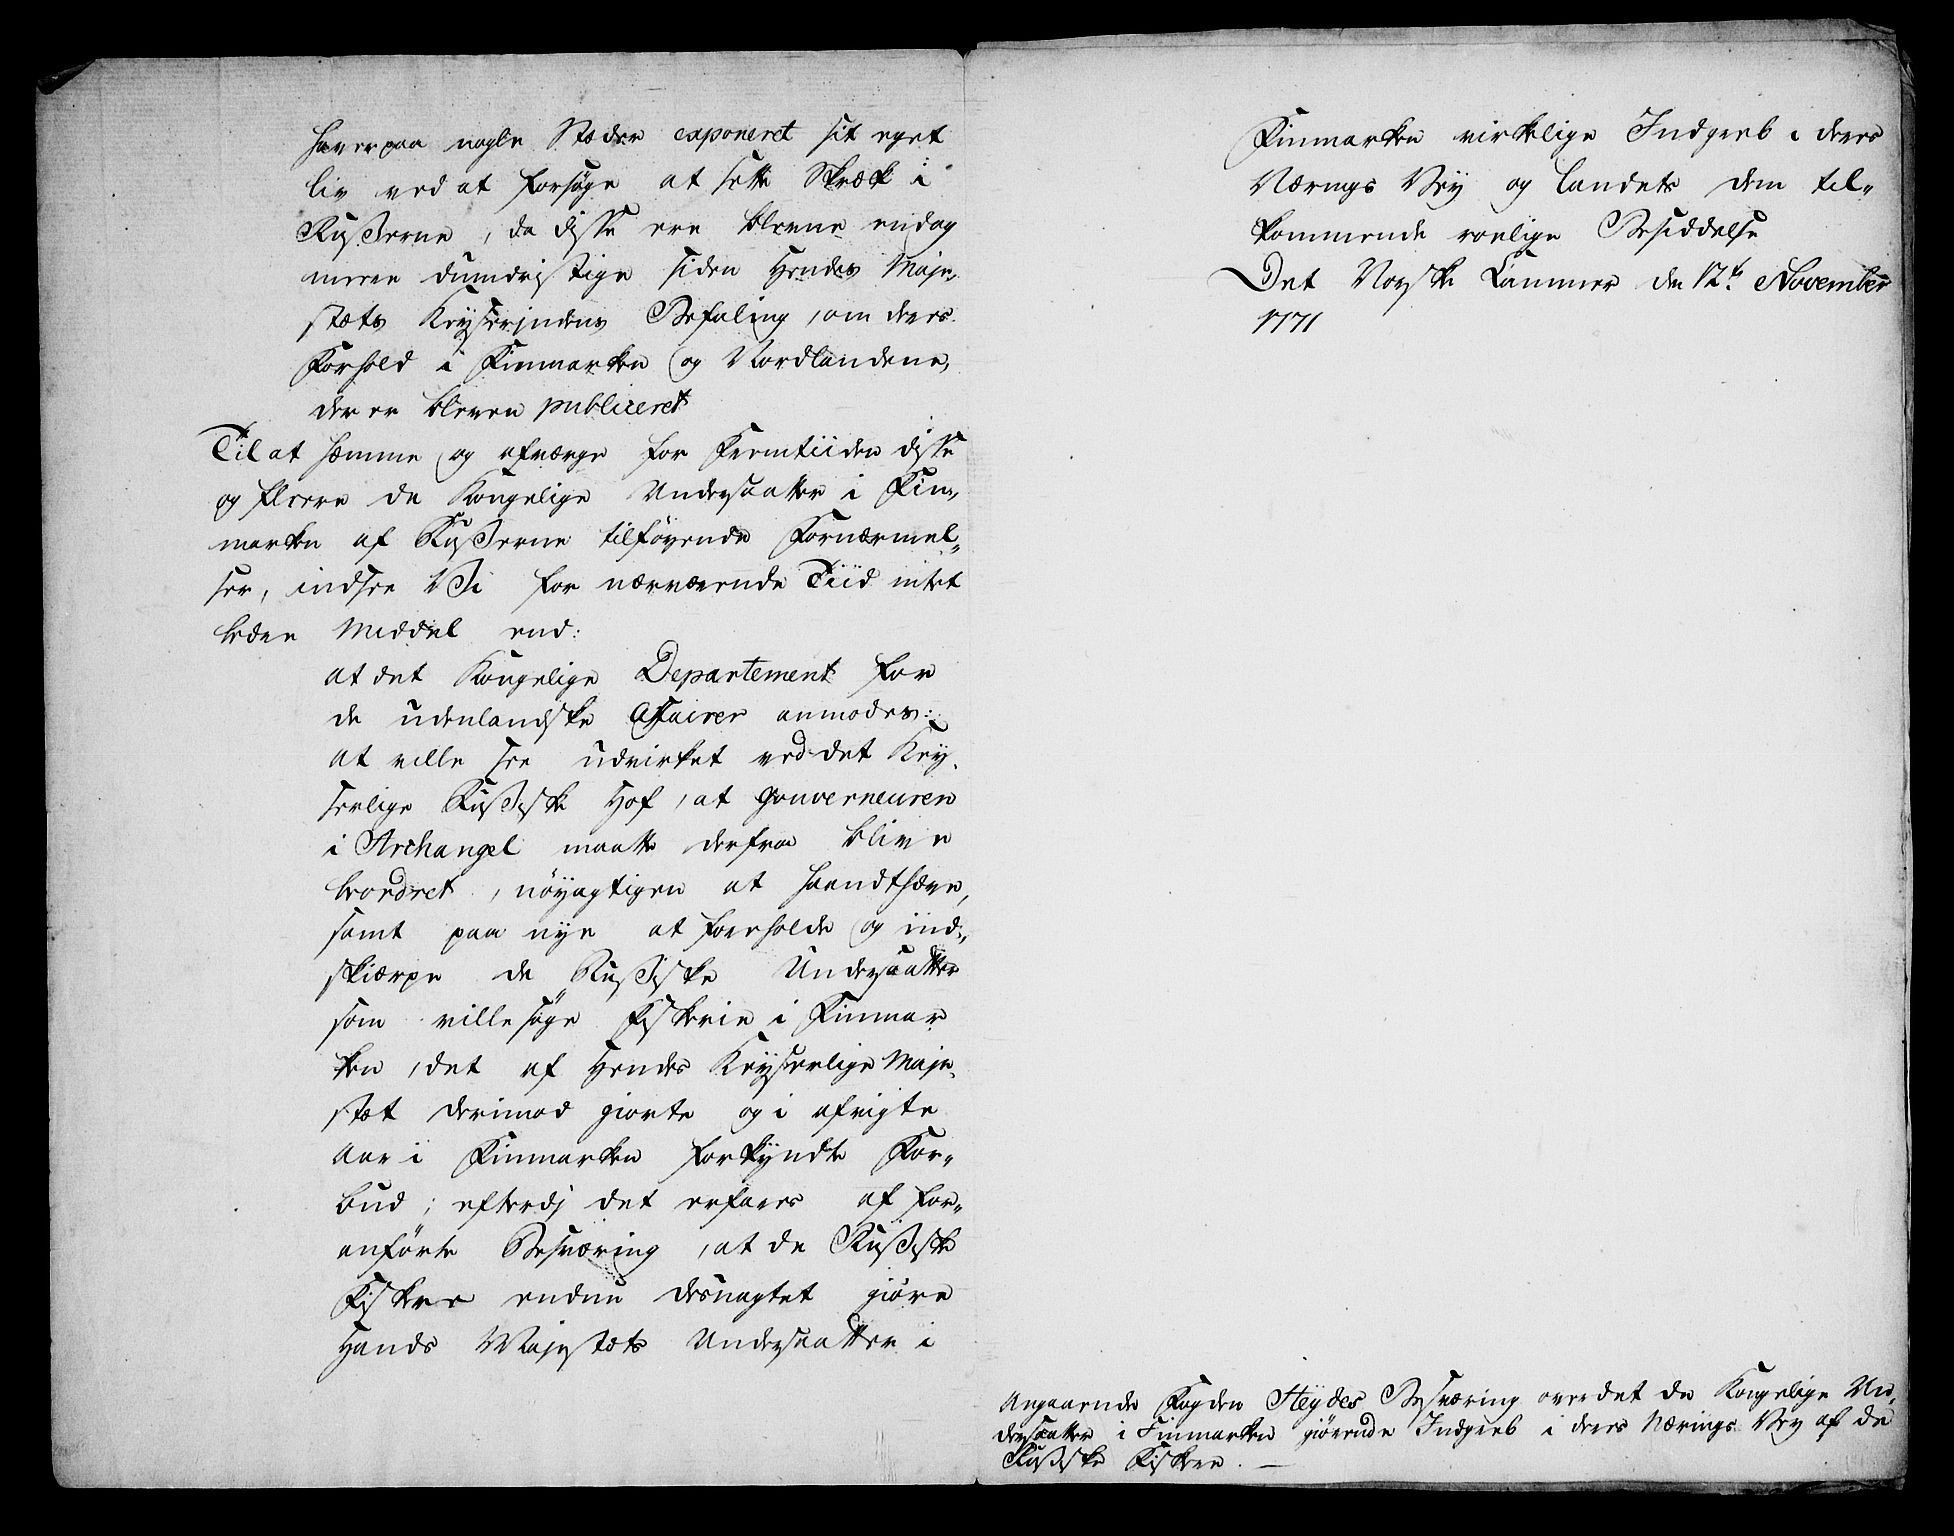 haver paa nogle Stæder exponeret sit eget
liv ved at forsøge at sette Skræk i
Rußerne, da disse ere blevne endog
meere dumdristige siden Hendes Maje-
stæts Keyserindens Befaling, om deres
Forhold i Finmarken og Nordlandene,
der er bleven publiceret
Til at hæmme og afværge for Fremtiiden disse
og fleere de Kongelige Undersaatter i Fin-
marken af Rußerne tilføyende Fornærmel-
ser, indsee Vi for nærværende Tiid intet
bedre Middel end:
at det Kongelige Departement for
de udenlandske Affairer anmodes:
at ville see udvirket ved det Key-
serlige Rußiske Hof, at Gouverneuren
i Archangel maatte derfra blive
beordret, nöyagtigen at haandthæve,
samt paa nye at foreholde og ind-
skiærpe de Rußiske Undersaatter
som ville söge Fiskerie i Finmar
ken, det af Hendes Keyserlige Maje-
stæt derimod giorte og i afvigte
Aar i Finmarken forkyndte For-
bud; efterdj det erfares af for-
anförte Besværing, at de Rußiske
Fiskere endnu desuagtet giöre
Hands Majestæts Undersaatter i
Finmarken virkelige Indgreb i deres
Nærings Vey og Landets dem til-
kommende roelige Besiddelse
Det Norske Cammer den 12te November
1771
Angaaende Fogden Heydes Besværing over det de Kongelige Un-
dersaatter i Finmarken giörende Indgreb i deres Nærings Vey af de
Rußiske Fiskere. —